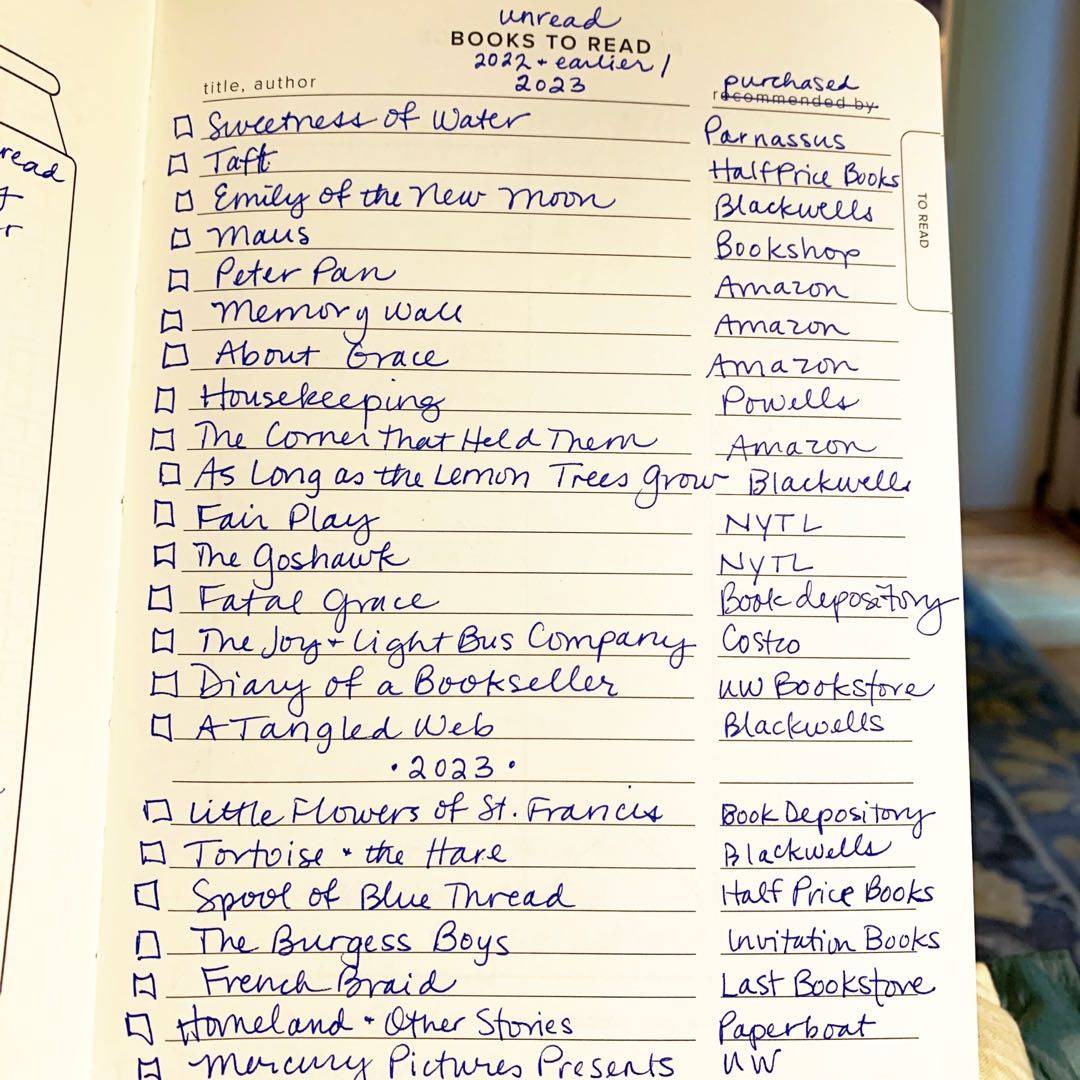 unread
BOOKS TO READ
2022 + earlier /
2023
title, author purchased
recommended by
Sweetness of Water Parnassus
Taft Half Price Books
Emily of the New Moon Blackwells
Maus Bookshop
Peter Pan Amazon
Memory Wall Amazon
About Grace Amazon
Housekeeping Powells
The Corner that Held Them Amazon
As Long as the Lemon Trees Grow Blackwells
Fair Play NYTL
The Goshawk NYTL
Fatal Grace Book depository
The Joy + Light Bus Company Costco
Diary of a Bookseller UW Bookstore
A Tangled Web Blackwells
• 2023 •
Little Flowers of St. Francis Book Depository
Tortoise + the Hare Blackwells
Spool of Blue Thread Half Price Books
The Burgess Boys Invitation Books
French Braid Last Bookstore
Homeland + Other Stories Paperboat
Mercury Pictures Presents UW
TO READ
read